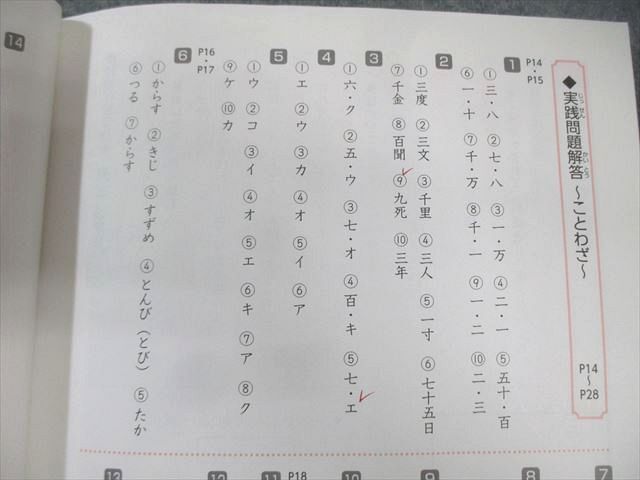 ◆実践問題解答 ～ことわざ～ P14～P28
じっせん かいとう
P14・P15
1
①三・八 ②七・八 ③一・万 ④二・一 ⑤五十・百
⑥一・十 ⑦千・万 ⑧千・一 ⑨一・二 ⑩二・三
2
①三度 ②三文 ③千里 ④三人 ⑤一寸 ⑥七十五日
⑦千金 ⑧百聞 ⑨九死 ⑩三年
3
①六・ク ②五・ウ ③七・オ ④百・キ ⑤七・エ
4
①エ ②ウ ③カ ④オ ⑤イ ⑥ア
5
①ウ ②コ ③イ ④オ ⑤エ ⑥キ ⑦ア ⑧ク
⑨ケ ⑩カ
P16・P17
6
①からす ②きじ ③すずめ ④とんび（とび） ⑤たか
⑥つる ⑦からす
14
7
8
9
10
P18
11
12
13